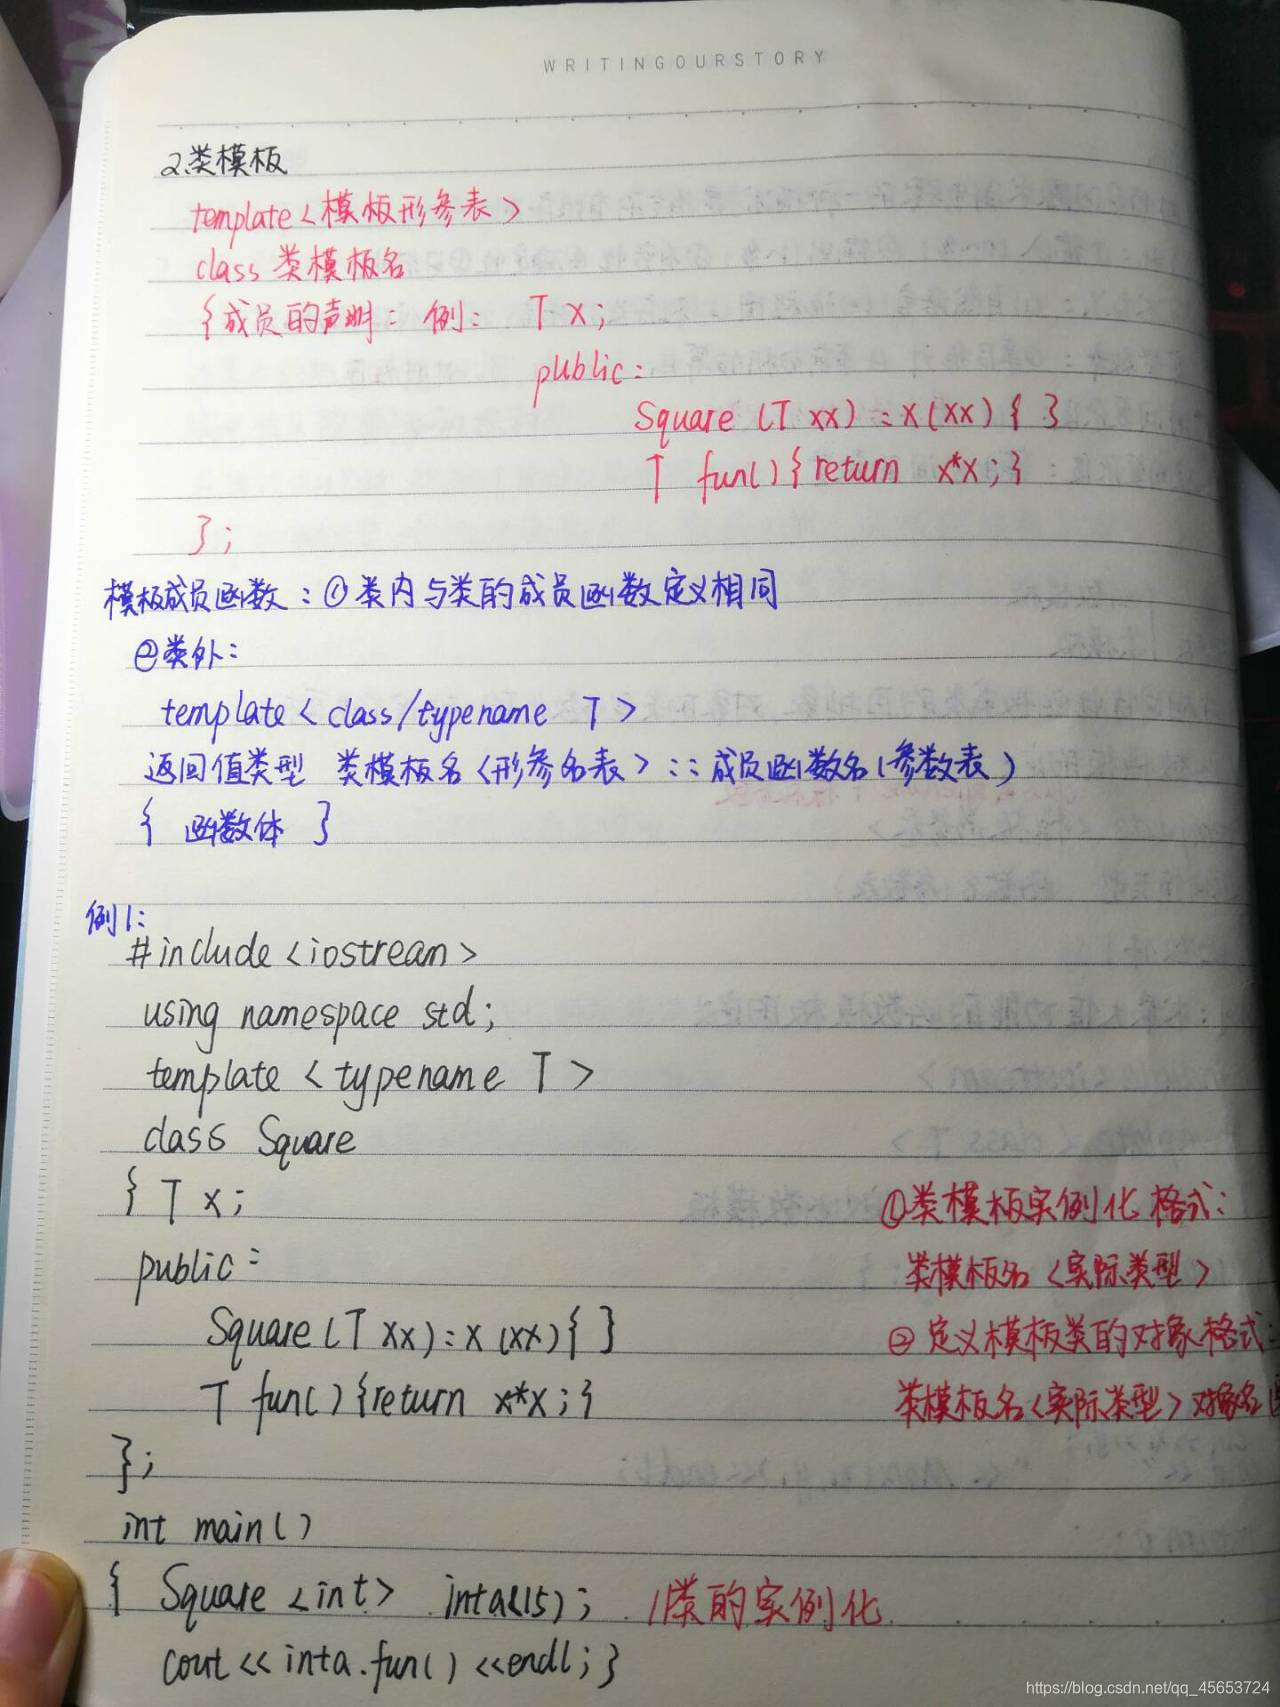 WRITINGOURSTORY
2.类模板
template<模板形参表>
class 类模板名
{成员的声明: 例: T x;
public:
Square (T xx):x(xx){ }
T fun(){return x*x;}
};
模板成员函数:①类内与类的成员函数定义相同
②类外:
template<class/typename T>
返回值类型 类模板名<形参名表>::成员函数名(参数表)
{ 函数体 }
例1:
#include<iostream>
using namespace std;
template <typename T>
class Square
{ T x;
public:
Square(T xx):x(xx){ }
T fun(){return x*x;}
};
int main()
{ Square <int> inta(15); //类的实例化
cout<<inta.fun()<<endl;}
①类模板实例化格式:
类模板名<实际类型>
②定义模板类的对象格式:
类模板名<实际类型>对象名(
https://blog.csdn.net/qq_45653724